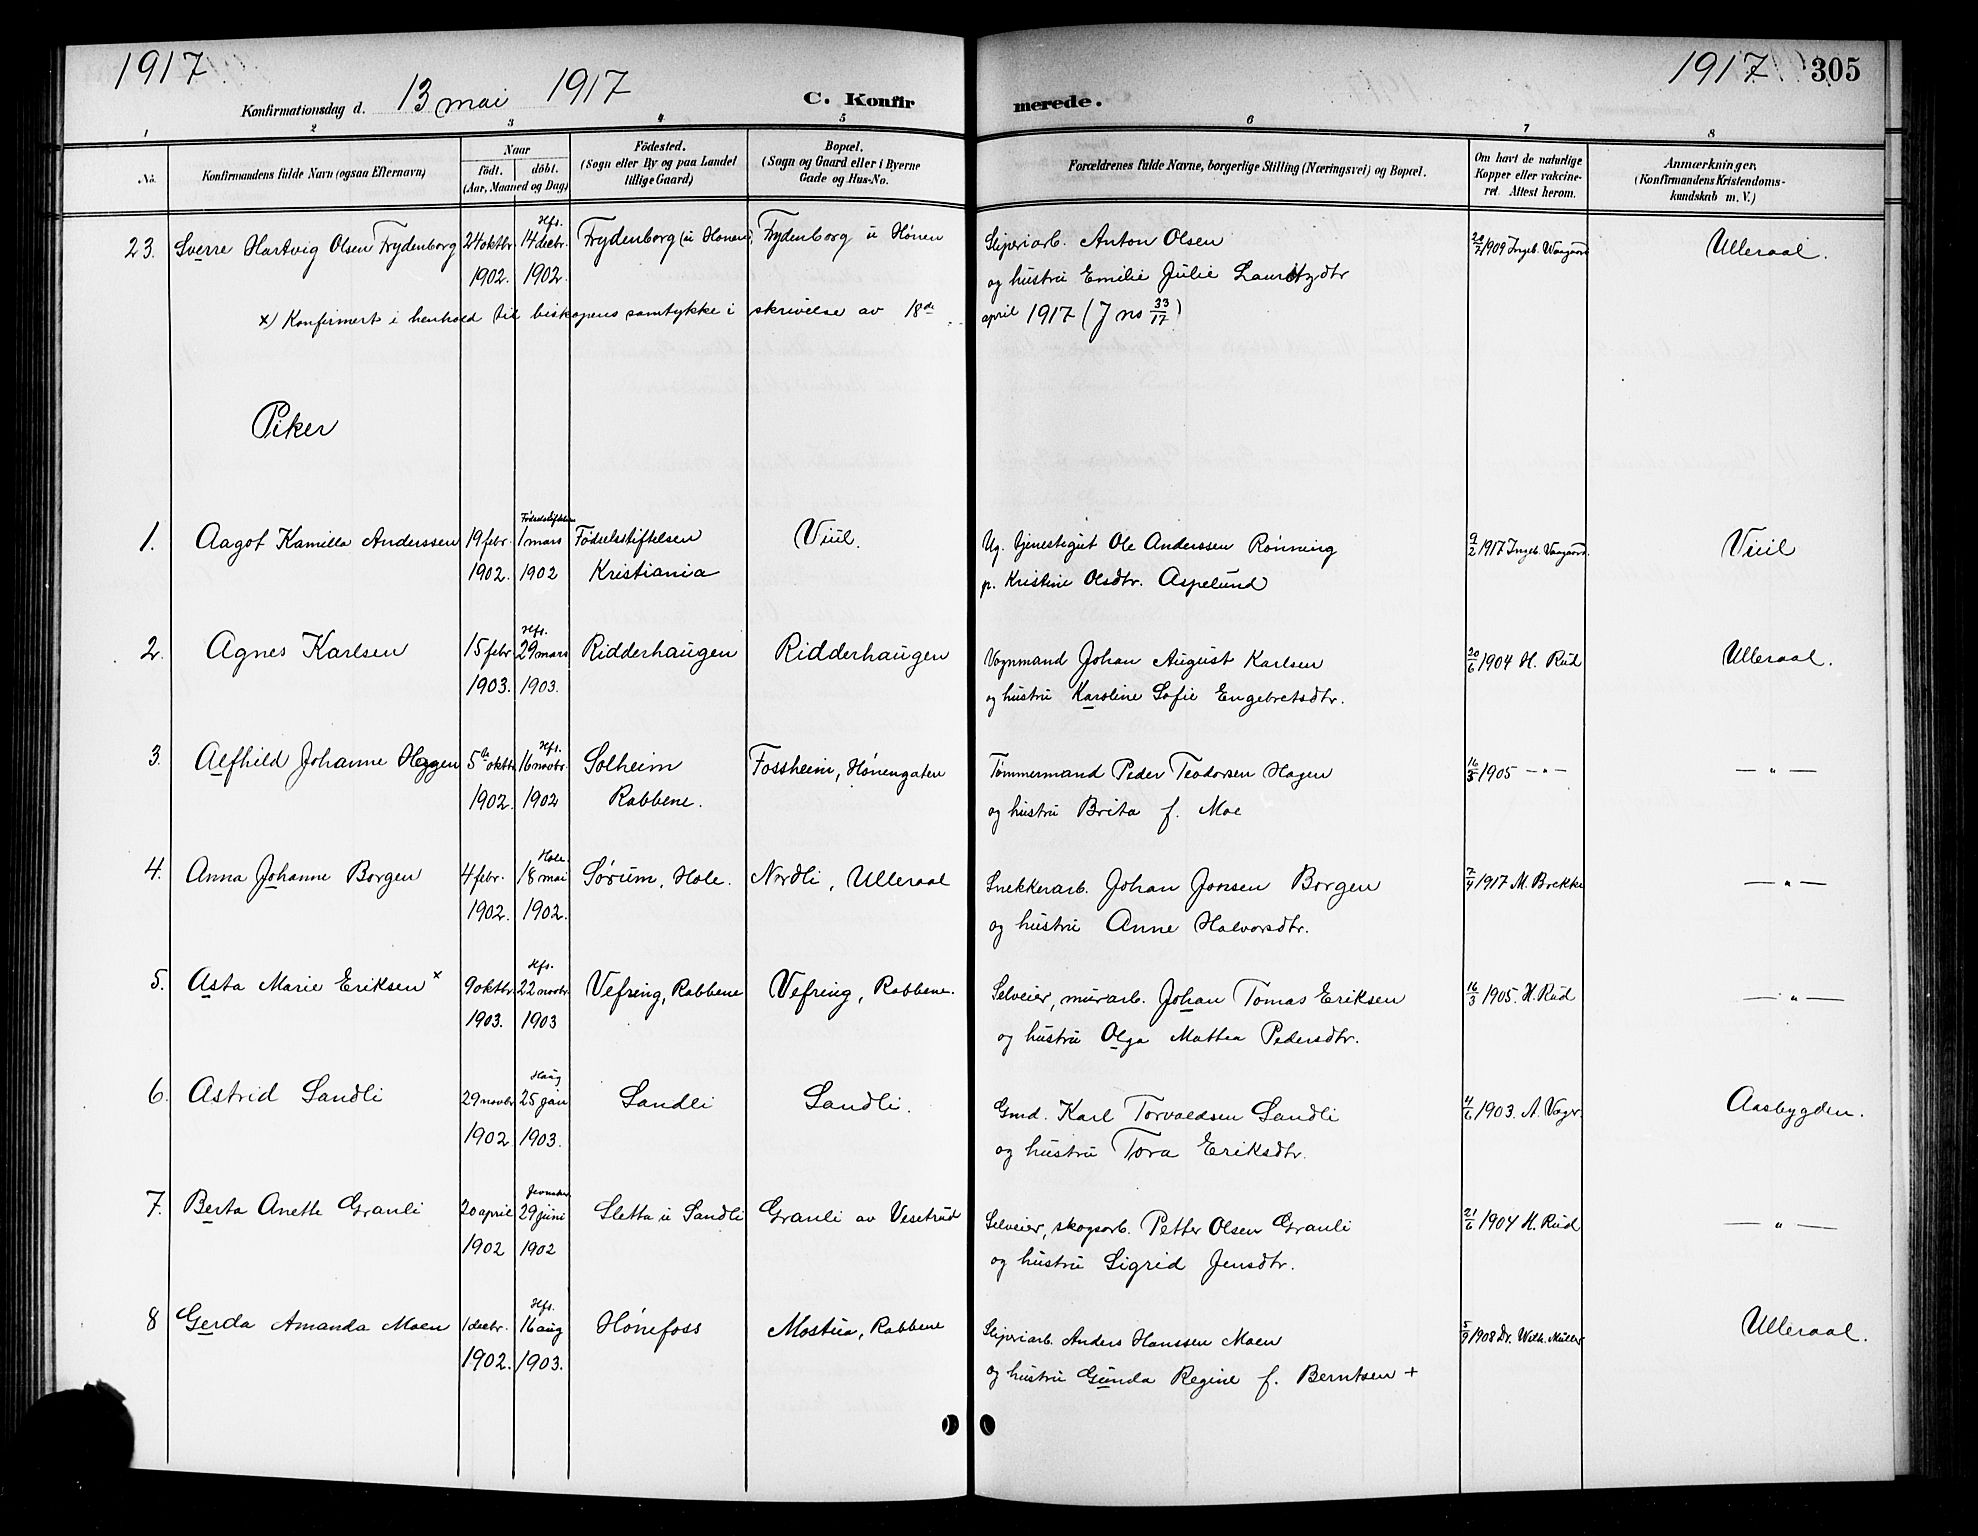 1917 1917 305
Konfirmationsdag d. 13 mai 1917 C. Konfirmerede.
1 2 3 4 5 6 7 8
No. Konfirmandens fulde Navn (ogsaa Efternavn) Naar födt. döbt. (Aar, Maaned og Dag) Födested. (Sogn eller By og paa Landet tillige Gaard) Bopæl. (Sogn og Gaard eller i Byerne Gade og Hus-No. Forældrenes fulde Navne, borgerlige Stilling (Næringsvei) og Bopæl. Om havt de naturlige Kopper eller vakcineret. Attest herom. Anmærkninger, (Konfirmandens Kristendomskundskab m. V.)
23. Sverre Hartvig Olsen Frydenborg 24 oktbr. Hfs. 14 decbr. Frydenborg (u Hønen), Frydenborg u Hønen Sliperiarb. Anton Olsen 1909 Ingeb. Vaagaard Ulleraal.
1902. 1902. og hustru Emilie Julie Lauritzdtr
x) Konfirmert i henhold til biskopens samtykke i skrivelse av 18de april 1917 (J no 33/17)
Piker
1. Aagot Kamilla Anderssen 19 febr. Fødselsstiftelsen 1 mars Fødselsstiftelsen Viul. Ug. tjenestegut Ole Anderssen Rønning 9/2 1917 Ingeb. Vaagaard. Viul
1902. 1902 Kristiania p. Kristine Olsdtr. Aspelund
2. Agnes Karlsen 15 febr Hfs. 29 mars Ridderhaugen Ridderhaugen Vognmand Johan August Karlsen 20/6 1904 H. Rud Ulleraal.
1903. 1903. og hustru Karoline Sofie Engebretsdtr.
3. Alfhild Johanne Heggen 5te oktbr Hfs. 16 novbr. Solheim Fossheim, Hønengaten Tømmermand Peder Teodorsen Hagen 16/3 1905 -"- -"-
1902. 1902 Rabbene. og hustru Brita f. Moe
4. Anna Johanne Borgen 4 febr. Hole. 18 mai Sørum, Hole. Nordli, Ulleraal Snekkerarb. Johan Jonsen Borgen 7/4 1917 M. Brekke -"-
1902. 1902. og hustru Anne Halvorsdtr.
5. Asta Marie Eriksen x 9 oktbr. Hfs. 22 novbr. Vefring, Rabbene Vefring, Rabbene. Selveier, murarb. Johan Tomas Eriksen 16/3 1905. H. Rud -"-
1903. 1903 og hustru Olga Mathea Pedersdtr.
6. Astrid Sandli 29 novbr Haug 25 jan Sandli Sandli. Gmd. Karl Torvaldsen Sandli 4/6 1903. A. Aasbygden.
1902 1903. og hustru Tora Eriksdtr.
7. Berta Anette Granli 20 april Jevnaker 29 juni Sletta u Sandli Granli av Vesetrud Selveier, skogsarb. Petter Olsen Granli 21/6 1904 H. Rud -"-
1902 1902 og hustru Sigrid Jensdtr.
8 Gerda Amanda Moen 1 decbr. Hfs. 16 aug Hønefoss Mostua, Rabbene Sliperiarb. Anders Hanssen Moen 5/9 1908 Dr. Wilh. Müller Ulleraal.
1902. 1903. og hustru Gunda Regine f. Berntsen +